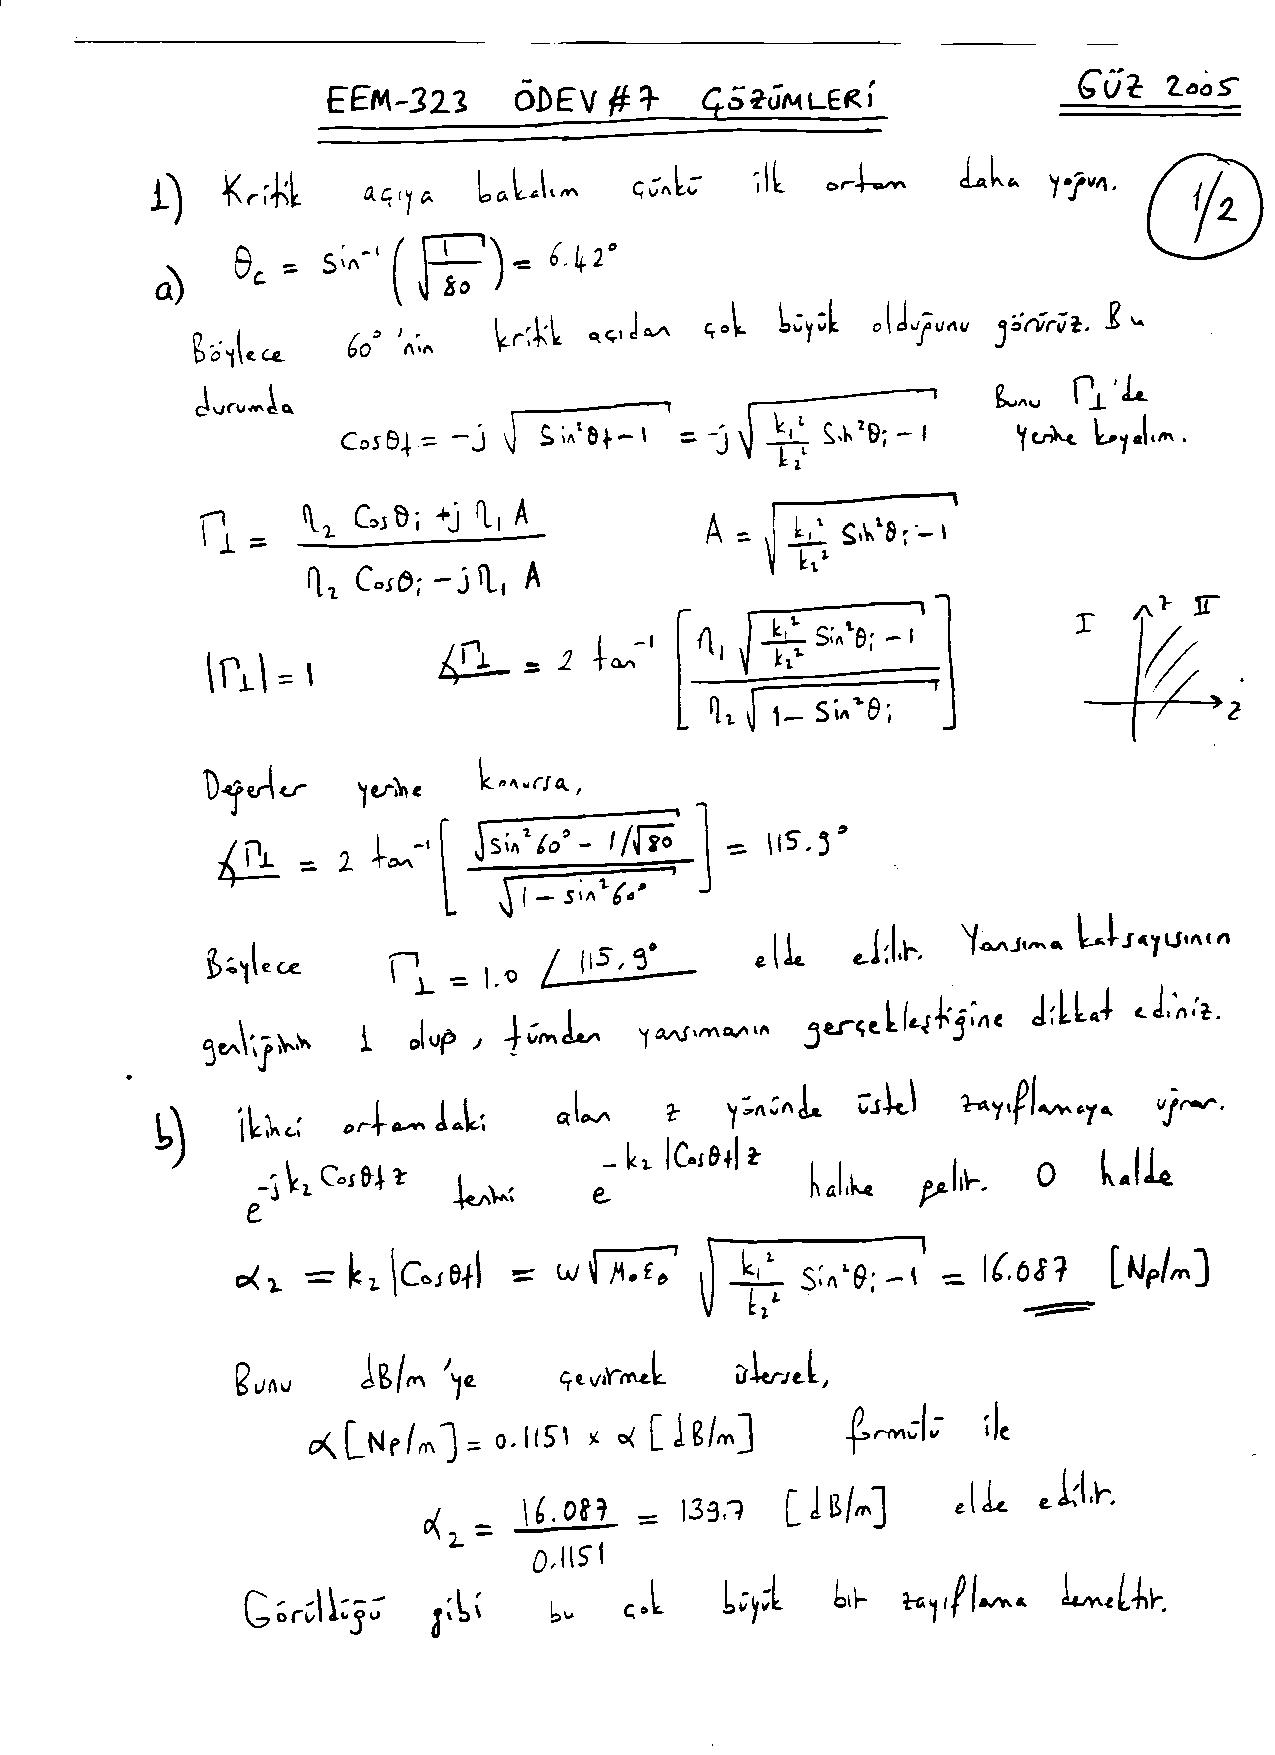 EEM-323 ÖDEV #7 ÇÖZÜMLERİ
GÜZ 2005
1/2
1) Kritik açıya bakalım çünkü ilk ortam daha yoğun.
a) θc = Sin⁻¹(√(1/80)) = 6.42°
Böylece 60°'nin kritik açıdan çok büyük olduğunu görürüz. Bu
durumda Cosθt = -j √(Sin²θt-1) = -j √(k₁²/k₂² Sin²θi-1) Bunu Γ⊥'de
yerine koyalım.
Γ⊥ = (η₂ Cosθi +j η₁ A)/(η₂ Cosθi -j η₁ A) A = √(k₁²/k₂² Sin²θi-1)
|Γ⊥| = 1 ∡Γ⊥ = 2 tan⁻¹ [η₁ √(k₁²/k₂² Sin²θi - 1) / η₂ √(1 - Sin²θi)]
I II
z
Değerler yerine konursa,
∡Γ⊥ = 2 tan⁻¹ [√(sin²60° - 1/√80) / √(1 - sin²60°)] = 115.9°
Böylece Γ⊥ = 1.0 ∠115.9° elde edilir. Yansıma katsayısının
genliğinin 1 olup, tümden yansımanın gerçekleştiğine dikkat ediniz.
b) İkinci ortamdaki alan z yönünde üstel zayıflamaya uğrar.
e^(-jk₂ Cosθt z) terimi e^(-k₂ |Cosθt| z) haline gelir. O halde
α₂ = k₂|Cosθt| = ω√(μ₀ε₀) √(k₁²/k₂² Sin²θi-1) = 16.087 [Np/m]
Bunu dB/m 'ye çevirmek istersek,
α[Np/m] = 0.1151 x α[dB/m] formülü ile
α₂ = 16.087/0.1151 = 139.7 [dB/m] elde edilir.
Görüldüğü gibi bu çok büyük bir zayıflama demektir.